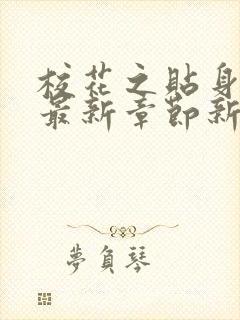 校花之貼身
最新章節新
夢負琴